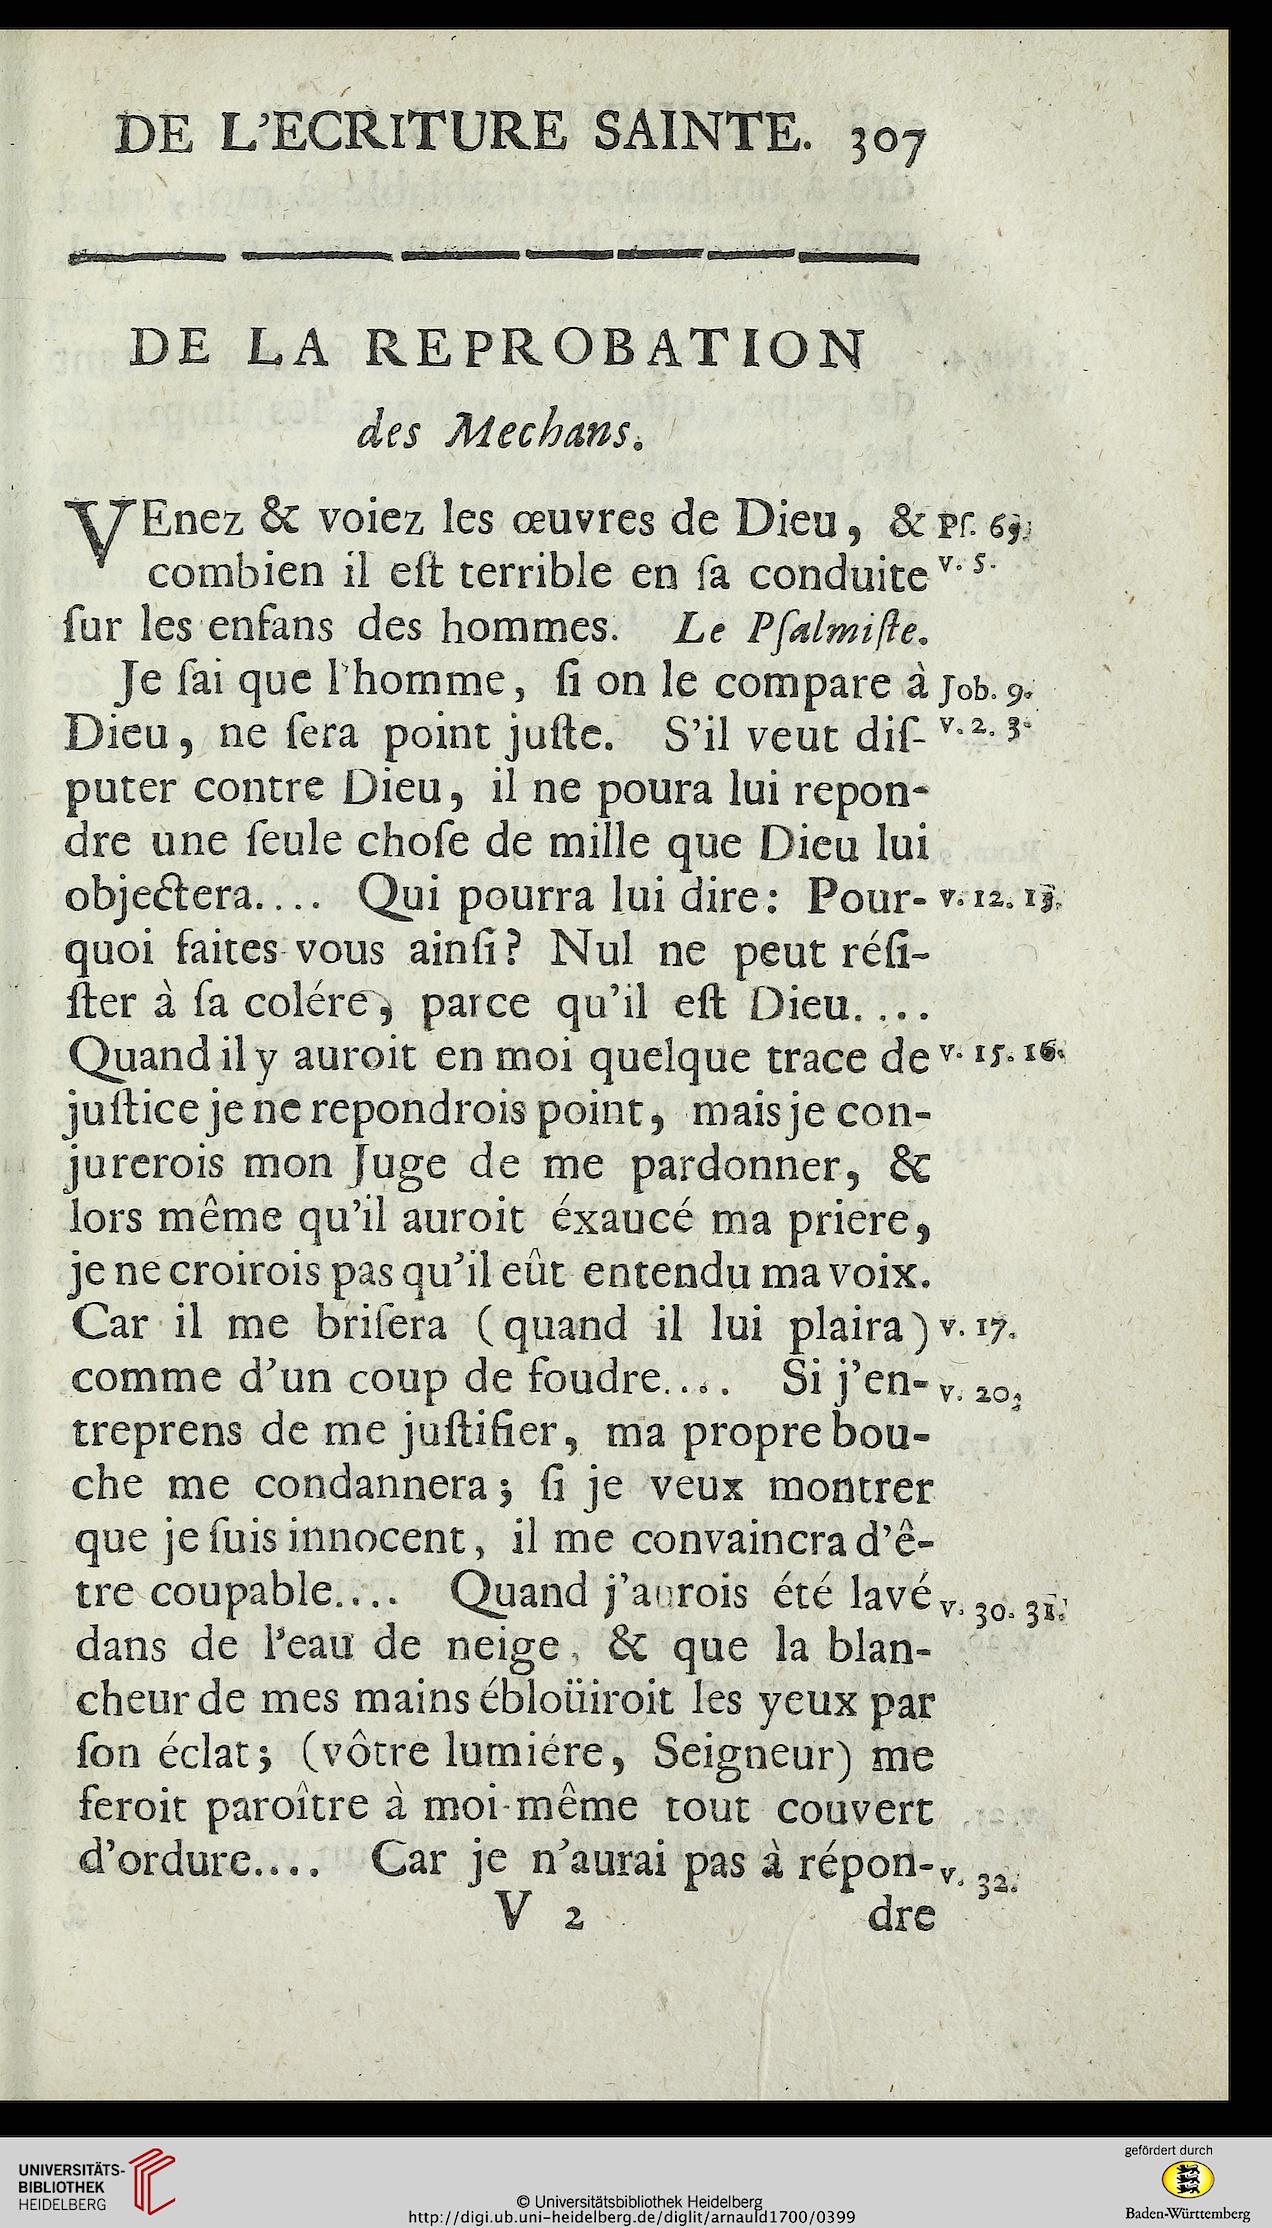 DE L'ECRITURE SAINTE. 307
DE LA REPROBATION
des Mechans.
VEnez & voiez les œuvres de Dieu, & Pſ. 65.
combien il eſt terrible en ſa conduite v. 5.
ſur les enfans des hommes. Le Pſalmiſte.
Je ſai que l'homme, ſi on le compare à Job. 9.
Dieu, ne ſera point juſte. S'il veut diſ- v. 2. 3.
puter contre Dieu, il ne poura lui repon-
dre une ſeule choſe de mille que Dieu lui
objectera.... Qui pourra lui dire: Pour- v. 12. 13.
quoi faites-vous ainſi? Nul ne peut réſi-
ſter à ſa colére, parce qu'il eſt Dieu....
Quand il y auroit en moi quelque trace de v. 15. 16.
juſtice je ne repondrois point, mais je con-
jurerois mon Juge de me pardonner, &
lors même qu'il auroit éxaucé ma priere,
je ne croirois pas qu'il eût entendu ma voix.
Car il me briſera (quand il lui plaira) v. 17.
comme d'un coup de foudre.... Si j'en- v. 20.
treprens de me juſtifier, ma propre bou-
che me condannera; ſi je veux montrer
que je ſuis innocent, il me convaincra d'ê-
tre coupable.... Quand j'aurois été lavé v. 30. 31.
dans de l'eau de neige, & que la blan-
cheur de mes mains ébloüiroit les yeux par
ſon éclat; (vôtre lumiére, Seigneur) me
feroit paroître à moi-même tout couvert
d'ordure.... Car je n'aurai pas à répon- v. 32.
V 2 dre
UNIVERSITÄTS-
BIBLIOTHEK
HEIDELBERG
© Universitätsbibliothek Heidelberg
http://digi.ub.uni-heidelberg.de/diglit/arnauld1700/0399
gefördert durch
Baden-Württemberg